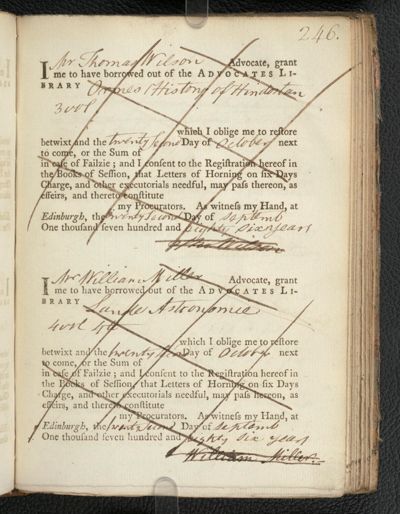 246.
I Mr Thomas Wilson Advocate, grant
me to have borrowed out of the ADVOCATES LI-
BRARY Ormes History of Hindostan
3 vol
which I oblige me to restore
betwixt and the twenty second Day of October next
to come, or the Sum of
in case of Failzie; and I consent to the Registration hereof in
the Books of Session, that Letters of Horning on six Days
Charge, and other executorials needful, may pass thereon, as
effeirs, and thereto constitute
my Procurators. As witness my Hand, at
Edinburgh, the twenty second Day of Septemb
One thousand seven hundred and eighty six years
Wilson
I Mr William Miller Advocate, grant
me to have borrowed out of the ADVOCATES LI-
BRARY Lande Astronomie
4 vol 4to
which I oblige me to restore
betwixt and the twenty Day of October next
to come, or the Sum of
in case of Failzie; and I consent to the Registration hereof in
the Books of Session, that Letters of Horning on six Days
Charge, and other executorials needful, may pass hereon, as
effeirs, and thereto constitute
my Procurators. As witness my Hand, at
Edinburgh, the twenty second Day of Septemb
One thousand seven hundred and eighty six years
William Miller.